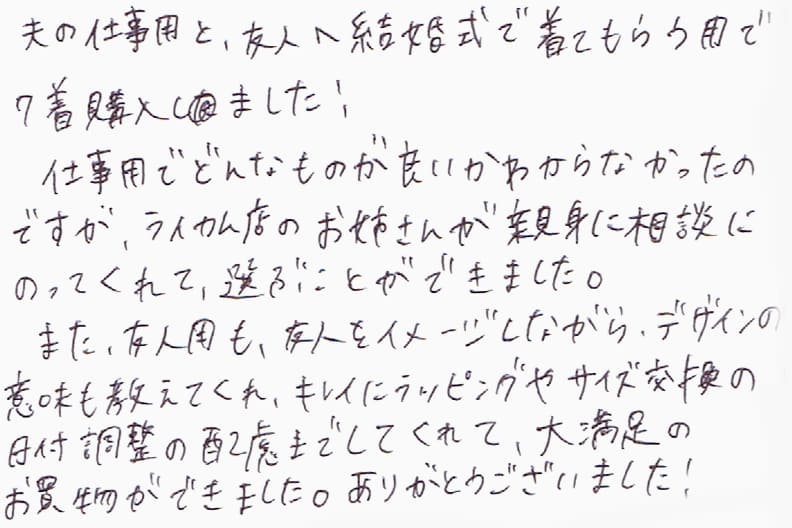 夫の仕事用と、友人へ結婚式で着てもらう用で
7着購入しました!
仕事用でどんなものが良いかわからなかったの
ですが、ライカム店のお姉さんが親身に相談に
のってくれて、選ぶことができました。
また、友人用も、友人をイメージしながら、デザインの
意味も教えてくれ、キレイにラッピングやサイズ交換の
日付調整の配慮までしてくれて、大満足の
お買物ができました。ありがとうございました!